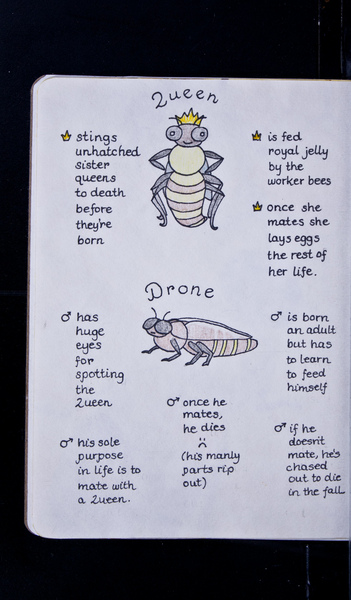 Queen
stings
unhatched
sister
queens
to death
before
they're
born
is fed
royal jelly
by the
worker bees
once she
mates she
lays eggs
the rest of
her life.
Drone
♂ has
huge
eyes
for
spotting
the
Queen
♂ is born
an adult
but has
to learn
to feed
himself
♂ his sole
purpose
in life is to
mate with
a Queen.
♂ once he
mates,
he dies
:(
(his manly
parts rip
out)
♂ if he
doesn't
mate, he's
chased
out to die
in the fall